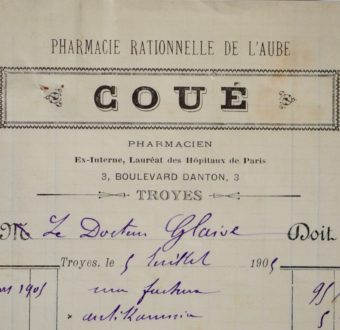 PHARMACIE RATIONNELLE DE L'AUBE
COUÉ
PHARMACIEN
Ex-Interne, Lauréat des Hôpitaux de Paris
3, BOULEVARD DANTON, 3
TROYES
M Le Docteur Glaive Doit
Troyes, le 5 Juillet 1905
1905 ma facture 95
antikamnia 5